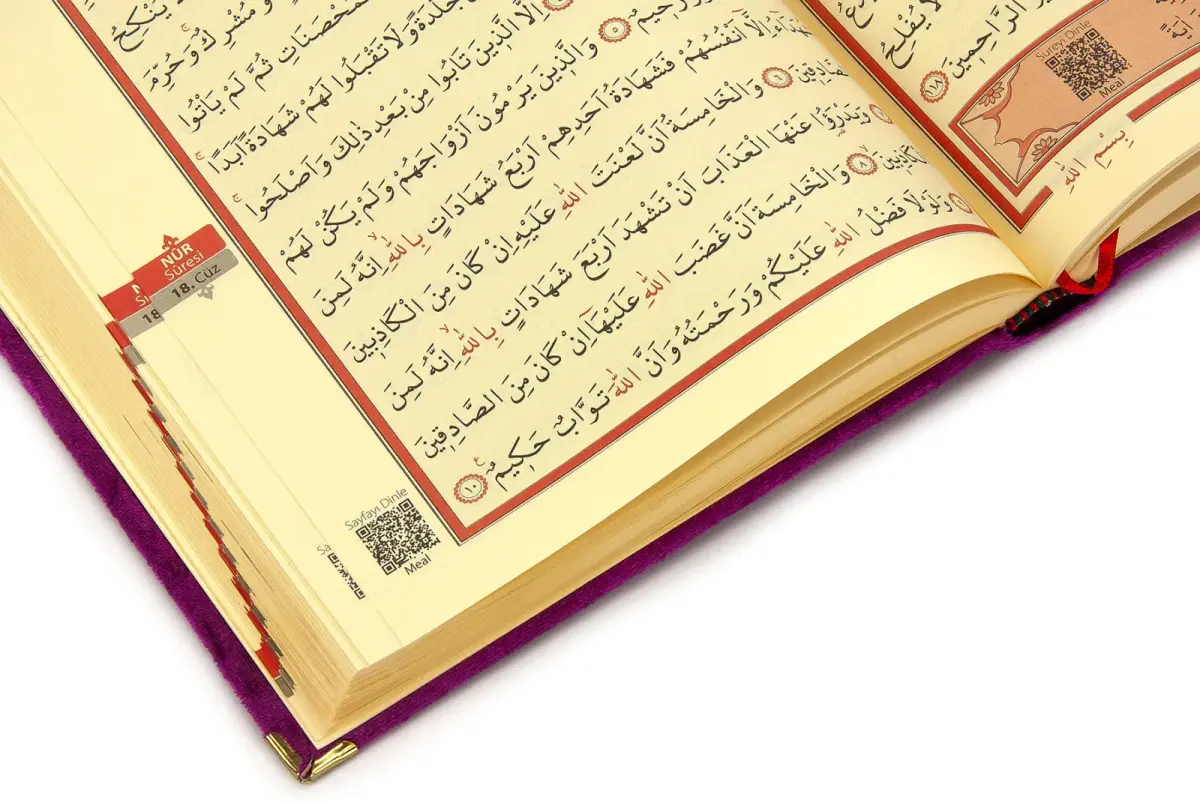 لَا يُفْلِحُ
الرَّاحِمِينَ ١١٨
Sureyi Dinle
Meal
بِسْمِ اللّٰهِ
يَنْكِحُ
وَمُشْرِكٌ وَحُرِّمَ
ثُمَّ لَمْ يَأْتُوا
جَلْدَةً وَلَا تَقْبَلُوا لَهُمْ شَهَادَةً اَبَدًا
اِلَّا الَّذِينَ تَابُوا مِنْ بَعْدِ ذٰلِكَ وَاَصْلَحُوا
رَحِيمٌ ٥ وَالَّذِينَ يَرْمُونَ اَزْوَاجَهُمْ وَلَمْ يَكُنْ لَهُمْ
اِلَّٓا اَنْفُسُهُمْ فَشَهَادَةُ اَحَدِهِمْ اَرْبَعُ شَهَادَاتٍ بِاللّٰهِ اِنَّهُ لَمِنَ
الصَّادِقِينَ ٦ وَالْخَامِسَةُ اَنَّ لَعْنَتَ اللّٰهِ عَلَيْهِ اِنْ كَانَ مِنَ الْكَاذِبِينَ
وَيَدْرَؤُا عَنْهَا الْعَذَابَ اَنْ تَشْهَدَ اَرْبَعَ شَهَادَاتٍ بِاللّٰهِ اِنَّهُ لَمِنَ
الْكَاذِبِينَ ٨ وَالْخَامِسَةَ اَنَّ غَضَبَ اللّٰهِ عَلَيْهَٓا اِنْ كَانَ مِنَ الصَّادِقِينَ
وَلَوْلَا فَضْلُ اللّٰهِ عَلَيْكُمْ وَرَحْمَتُهُ وَاَنَّ اللّٰهَ تَوَّابٌ حَكِيمٌ ١٠
NÛR
Sûresi
18. Cüz
18
Sayfayı Dinle
Meal